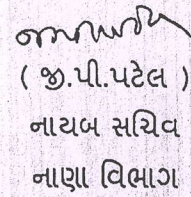 ( જી.પી.પટેલ )
નાયબ સચિવ
નાણા વિભાગ